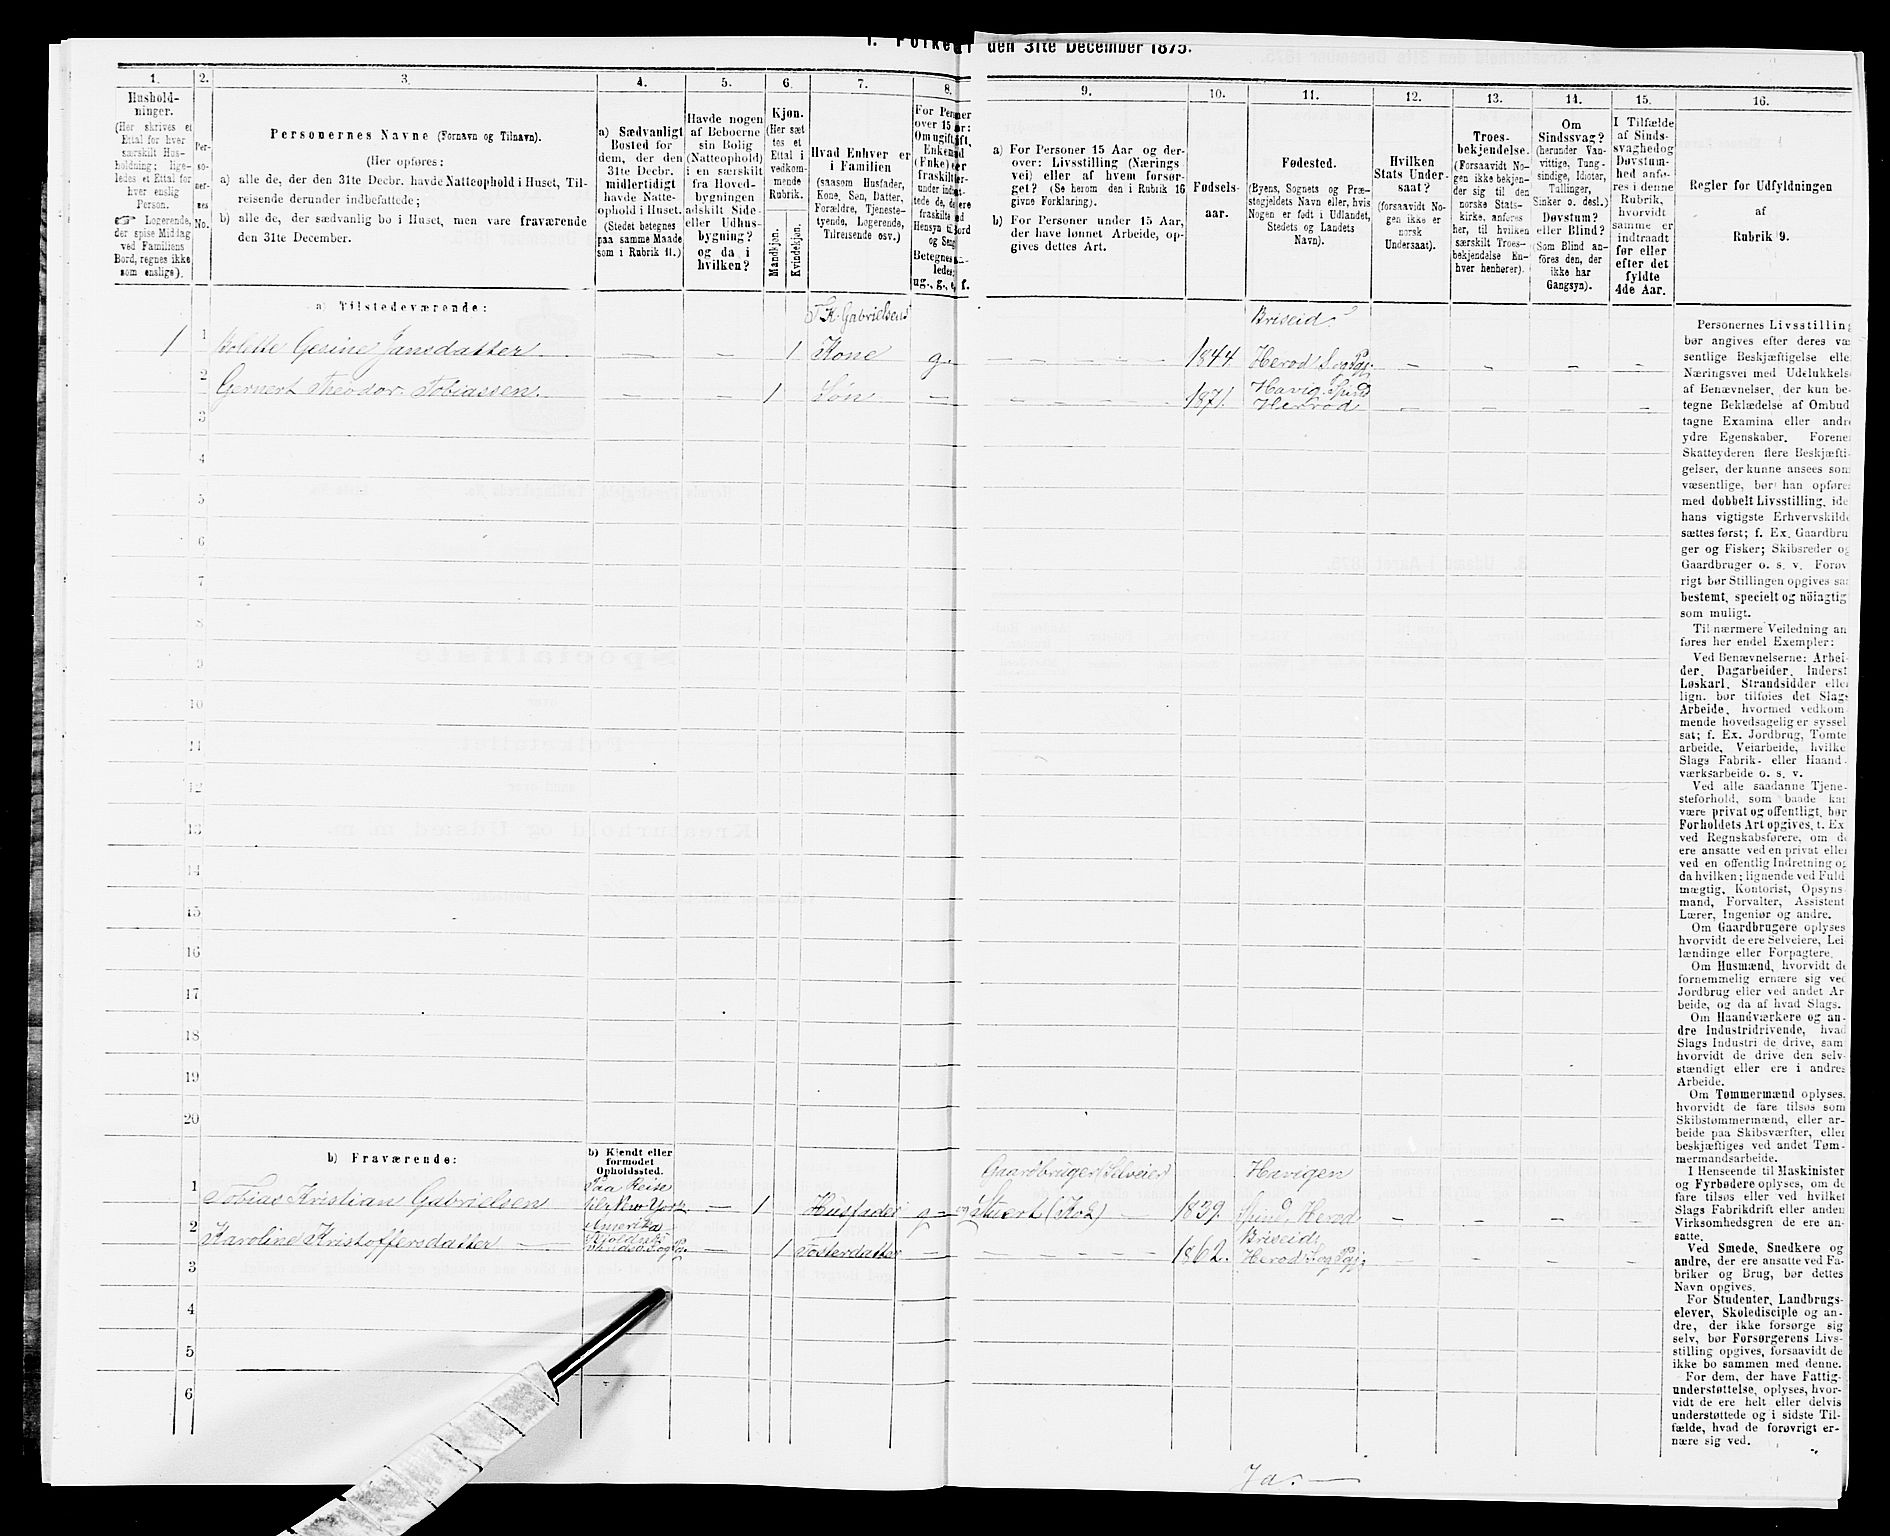 den 31te December 1875.
1. 2. 3. 4. 5. 6. 7. 8. 9. 10. 11. 12. 13. 14. 15. 16.
Hushold-
ninger.
(Her skrives et
Ettal for hver
særskilt Hus-
holdning; lige-
ledes et Ettal for
hver enslig
Person.
Logerende,
der spise Middag
ved Familiens
Bord, regnes ikke
som enslige).
Per-
so-
ner-
nes
No.
Personernes Navne (Fornavn og Tilnavn).
(Her opføres:
a) alle de, der den 31te Decbr. havde Natteophold i Huset, Til-
reisende derunder indbefattede;
b) alle de, der sædvanlig bo i Huset, men vare fraværende
den 31te December.
a) Sædvanligt
Bosted for
dem, der den
31te Decbr.
midlertidigt
havde Natte-
ophold i Huset.
(Stedet betegnes
paa samme Maade
som i Rubrik 11.)
Havde nogen
af Beboerne
sin Bolig
(Natteophold)
i en særskilt
fra Hoved-
bygningen
adskilt Side-
eller Udhus-
bygning?
og da i
hvilken?
Kjøn.
(Her sæt
tes et
Ettal i
vedkom-
mende
Rubrik.
Mandkjøn.
Kvindekjøn.
Hvad Enhver er
i Familien
(saasom Husfader,
Kone, Søn, Datter,
Forældre, Tjeneste-
tyende, Logerende,
Tilreisende osv.)
a) For Personer 15 Aar og der-
over: Livsstilling (Nærings
vei) eller af hvem forsør-
get? (Se herom den i Rubrik 16
givne Forklaring).
b) For Personer under 15 Aar,
der have lønnet Arbeide, op-
gives dettes Art.
Fødsels-
aar.
Fødested.
(Byens, Sognets og Præ-
stegjeldets Navn eller, hvis
Nogen er født i Udlandet,
Stedets og Landets
Navn).
Hvilken
Stats Under-
saat?
(forsaavidt No-
gen ikke er
norsk
Undersaat).
Troes-
bekjendelse.
(Forsaavidt No-
gen ikke bekjen-
der sig til den
norske Stats-
kirke, anføres
her, til hvilken
særskilt Troes-
bekjendelse En-
hver henhører).
Om
Sindssvag?
(herunder Van-
vittige, Tung-
sindige, Idioter,
Tullinger,
Sinker o. desl.)
Døvstum?
eller Blind?
(Som Blind an-
føres den, der
ikke har
Gangsyn).
I Tilfælde
af Sinds-
svaghed og
Døvstum-
hed anfø-
res i denne
Rubrik,
hvorvidt
samme er
indtraadt
før eller
efter det
fyldte
4de Aar.
Regler for Udfyldningen
af
Rubrik 9.
a) Tilstedeværende:
T. K. Gabrielsens
Briseid
1 1 Bolette Gesine Jansdatter — — 1 Kone g. — 1844 Herod S. og Pgj. — — — —
2 Gernert Theodor Tobiassen. — — 1 Søn — — 1871. Havig. Spind
Herrod — — — —
3
4
5
6
7
8
9
10
11
12
13
14
15
16
17
18
19
20
b) Fraværende:
b) Kjendt eller
formodet
Opholdssted.
Gaardbruger Selveier
Havigen
Paa Reise
1 Tobias Kristian Gabrielsen til New York — 1 Husfader g — og Stuert (Kok) — 1839. Spind, Herod — — — —
Amerika
Briseid
2 Karoline Kristoffersdatter — — 1 Fosterdatter — — 1862. Herod S. og Pgj. — — — —
3
4
5
6
Personernes Livsstilling
bør angives efter deres væ
sentlige Beskjæftigelse eller
Næringsvei med Udelukkelse
af Benævnelser, der kun be-
tegne Beklædelse af Ombud
tagne Examina eller andre
ydre Egenskaber. Forener
Skatteyderen flere Beskjæfti-
gelser, der kunne ansees som
væsentlige, bør han opføres
med dobbelt Livsstilling, ide
hans vigtigste Erhvervskilde
sættes først; f. Ex. Gaardbru
ger og Fisker; Skibsreder og
Gaardbruger o. s. v. Forøv
rigt bør Stillingen opgives saa
bestemt, specielt og nöiagtig
som muligt.
Til nærmere Veiledning an
føres her endel Exempler:
Ved Benævnelserne: Arbei-
der, Dagarbeider, Inderst
Løskarl, Strandsidder eller
lign. bør tilføies det Slags
Arbeide, hvormed vedkom
mende hovedsagelig er syssel
sat; f. Ex. Jordbrug, Tomte
arbeide, Veiarbeide, hvilket
Slags Fabrik- eller Haand
værksarbeide o. s. v.
Ved alle saadanne Tjene-
steforhold, som baade kan
være privat og offentligt, bør
Forholdets Art opgives, f. Ex
ved Regnskabsførere, om de
ere ansatte ved en privat eller
ved en offentlig Indretning og
da hvilken; lignende ved Fuld
mægtig, Kontorist, Opsyns-
mand, Forvalter, Assistent
Lærer, Ingeniør og andre.
Om Gaardbrugere oplyses
hvorvidt de ere Selveiere, Lei
lændinge eller Forpagtere.
Om Husmænd, hvorvidt de
fornemmelig ernære sig ved
Jordbrug eller ved andet Ar
beide, og da af hvad Slags.
Om Haandværkere og an-
dre Industridrivende, hvad
Slags Industri de drive, samt
hvorvidt de drive den selv-
stændigt eller ere i andres
Arbeide.
Om Tømmermænd oplyses,
hvorvidt de fare tilsøs som
Skibstømmermænd, eller ar-
beide paa Skibsværfter, eller
beskjæftiges ved andet Tøm-
mermandsarbeide.
I Henseende til Maskinister
og Fyrbødere oplyses, om de
fare tilsøs eller ved hvilket
Slags Fabrikdrift eller anden
Virksomhedsgren de ere an-
satte.
Ved Smede, Snedkere og
andre, der ere ansatte ved Fa-
briker og Brug, bør dettes
Navn opgives.
For Studenter, Landbrugs-
elever, Skoledisciple og an-
dre, der ikke forsørge sig
selv, bør Forsørgerens Livs-
stilling opgives, forsaavidt de
ikke bo sammen med denne.
For dem, der have Fattig-
understøttelse, oplyses, hvor-
vidt de ere helt eller delvis
understøttede og i sidste Til-
fælde, hvad de forøvrigt er-
nære sig ved.
Ja. —